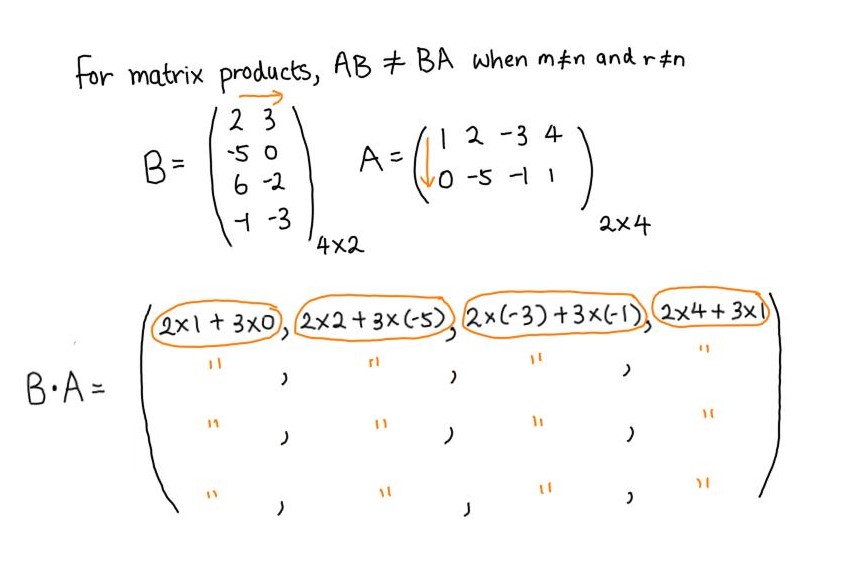 For matrix products, AB ≠ BA when m≠n and r≠n
B = ( 2 3
-5 0
6 -2
-1 -3 ) 4×2
A = ( 1 2 -3 4
0 -5 -1 1 ) 2×4
B·A = ( 2×1 + 3×0, 2×2 + 3×(-5), 2×(-3) + 3×(-1), 2×4 + 3×1
" , " , " , "
" , " , " , "
" , " , " , " )